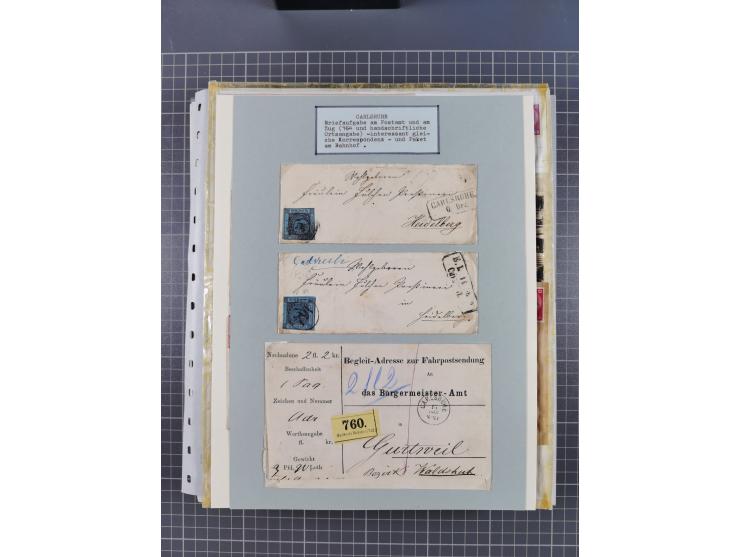 CARLSRUHE
Briefaufgabe am Postamt und am
Zug (164 und handschriftliche
Ortsangabe) -interessant glei-
che Korrespondenz - und Paket
am Bahnhof .
Wohlgeboren
Fräulein
CARLSRUHE
6 Dez.
Heidelberg
Carlsruhe
Wohlgeboren
Fräulein
in
Heidelberg
Nachnahme 2 fl. 2 kr.
Beschaffenheit
1 Paq.
Zeichen und Nummer
Adr
Werthsangabe
fl. kr.
Gewicht
3 Pfd. Loth
Begleit-Adresse zur Fahrpostsendung
An
das Bürgermeister-Amt
2 112
CARLSRUHE
760.
in
Gurtweil
Bezirk Waldshut